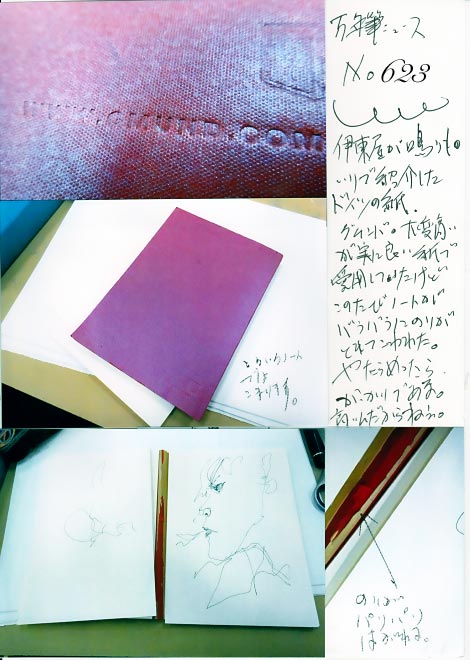 万年筆ニュース
No 623
伊東屋が鳴りもの
いりで紹介した
ドイツの紙.
グムンド。大変高い
が実に良い紙で
愛用していたけど
このたびノートが
バラバラにのりが
とれてこわれた。
やたらめったら
がっかりである。
高いんだからねぇ。
WWW.GMUND.COM
こまります。
のりが
パリパリ
はがれる。